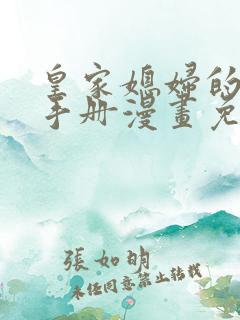 皇家媳婦的
手册漫畫免
張如明
未经同意禁止转载